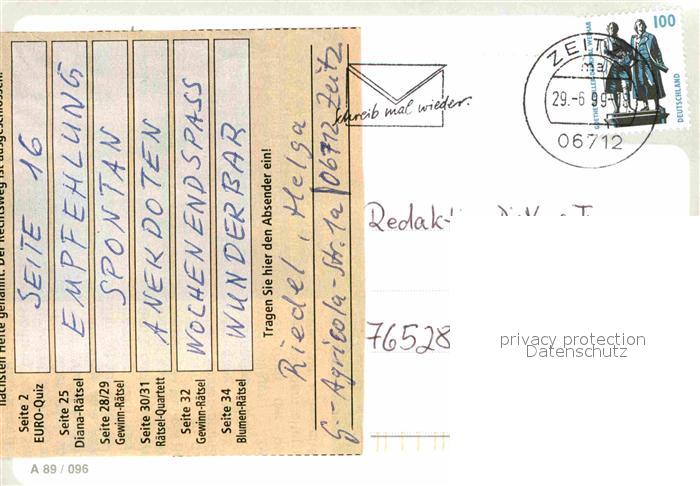 nächsten Hefte genannt. Der Rechtsweg ist ausgeschlossen.
Seite 2
EURO-Quiz
SEITE 16
Seite 25
Diana-Rätsel
EMPFEHLUNG
Seite 28/29
Gewinn-Rätsel
SPONTAN
Seite 30/31
Rätsel-Quartett
ANEKDOTEN
Seite 32
Gewinn-Rätsel
WOCHENENDSPASS
Seite 34
Blumen-Rätsel
WUNDERBAR
Tragen Sie hier den Absender ein!
Riedel, Helga
G.-Agricola-Str. 1a 06712 Zeitz
A 89 / 096
schreib mal wieder.
ZEITZ
ma
29.-6.99
06712
100
DEUTSCHLAND
GOETHE WEIMAR
Redak
76528
privacy protection
Datenschutz